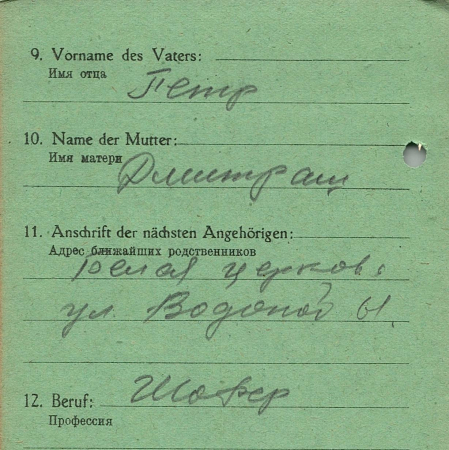 9. Vorname des Vaters:
Имя отца
Петр
10. Name der Mutter:
Имя матери
Дмитраш
11. Anschrift der nächsten Angehörigen:
Адрес ближайших родственников
Белая церковь
ул. Водопой 61
12. Beruf: Шофер
Профессия